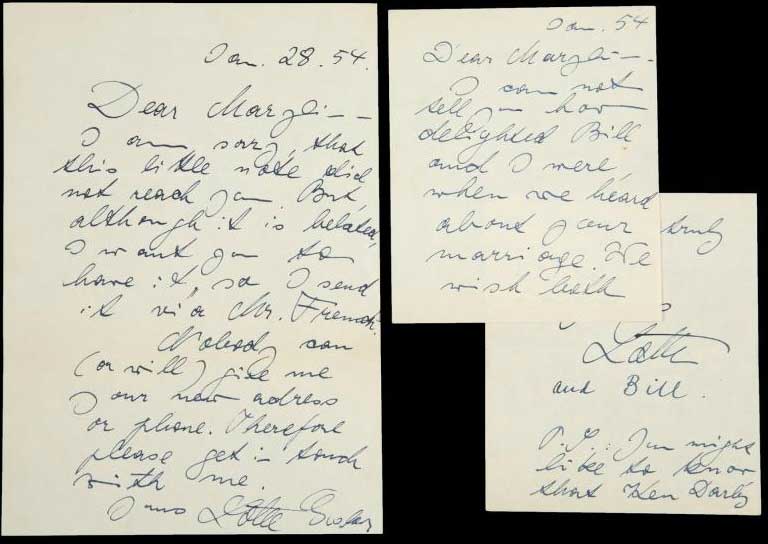 Jan. 28. 54.
Dear Marylin -
I am sorry, that
this little note did
not reach you. But,
although it is belated,
I want you to
have it, so I send
it via Mr. French.
Nobody can
(or will) give me
your new adress
or phone. Therefore
please get in touch
with me.
Yours Lotte Goslar
Jan. 54
Dear Marylin -.
I can not
tell you how
delighted Bill
and I were,
when we heard
about your
marriage. We
wish both
truly
Lotte
and Bill.
P.S.: You might
like to know
that Ken Darby